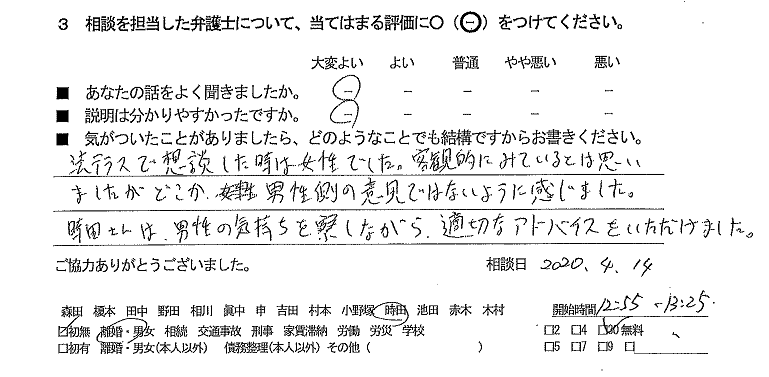 3 相談を担当した弁護士について、当てはまる評価に○（⊖）をつけてください。
大変よい よい 普通 やや悪い 悪い
■ あなたの話をよく聞きましたか。 － － － － －
■ 説明は分かりやすかったですか。 － － － － －
■ 気がついたことがありましたら、どのようなことでも結構ですからお書きください。
法テラスで想談した時は女性でした。客観的にみているとは思い
ましたがどこか、男性側の意見ではないように感じました。
時田さんは、男性の気持ちを察しながら、適切なアドバイスをいただけました。
ご協力ありがとうございました。 相談日 2020.4.14
森田 榎本 田中 野田 相川 眞中 申 吉田 村本 小野塚 時田 池田 赤木 木村 開始時間 12:55 -13:25
☑初無 離婚・男女 相続 交通事故 刑事 家賃滞納 労働 労災 学校 □2 □4 □20 無料
□初有 離婚・男女(本人以外) 債務整理(本人以外) その他 ( ) □5 □7 □9 □